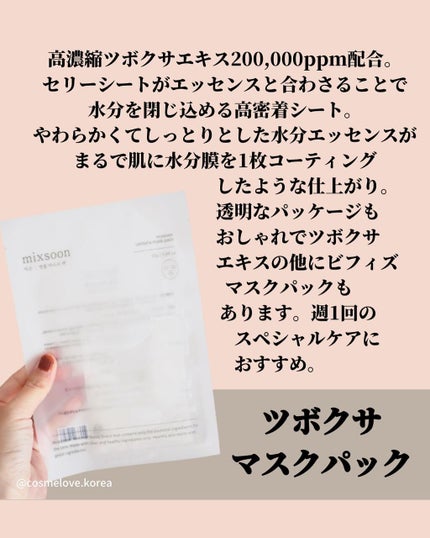 高濃縮ツボクサエキス200,000ppm配合。
セリーシートがエッセンスと合わさることで
水分を閉じ込める高密着シート。
やわらかくてしっとりとした水分エッセンスが
まるで肌に水分膜を1枚コーティング
したような仕上がり。
透明なパッケージも
おしゃれでツボクサ
エキスの他にビフィズ
マスクパックも
あります。週1回の
スペシャルケアに
おすすめ。
mixsoon
ツボクサ
マスクパック
@cosmelove.korea